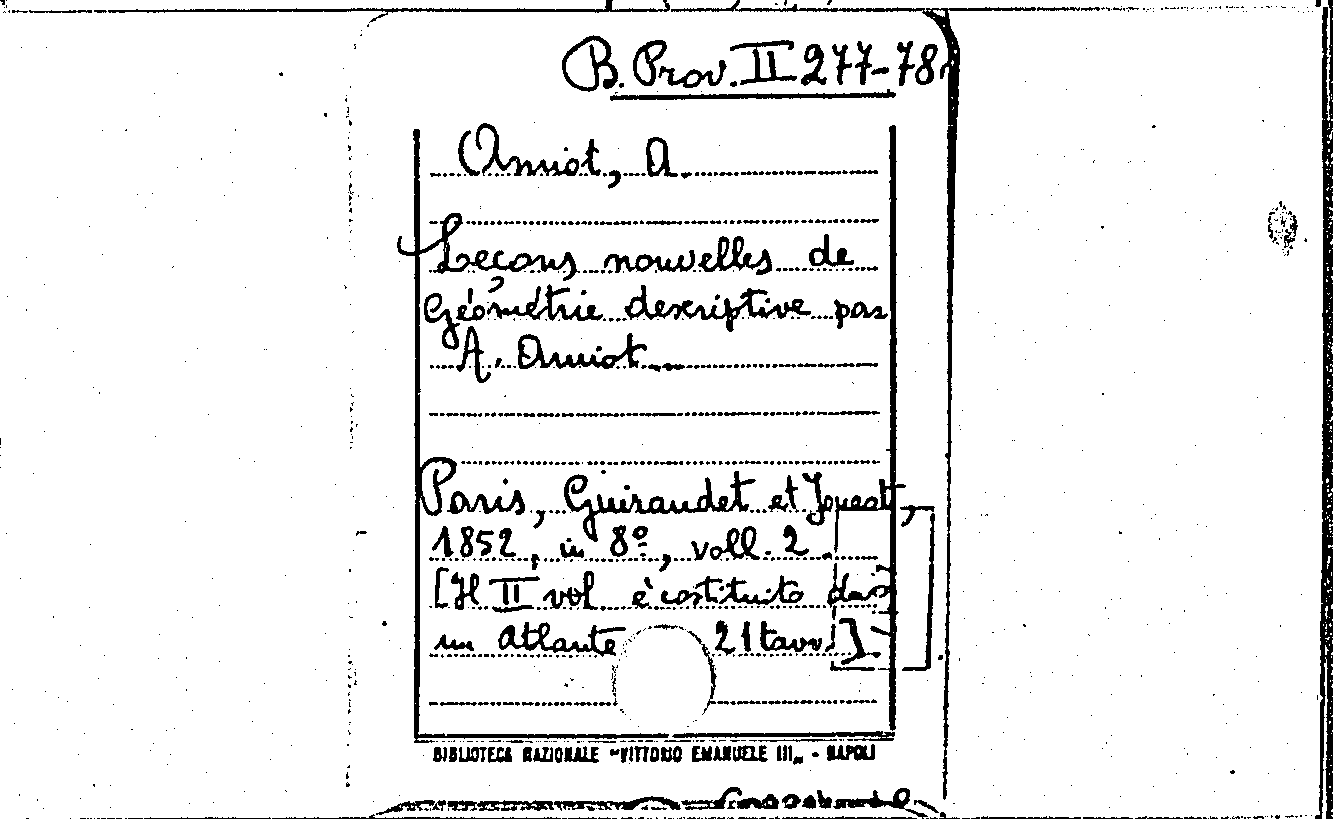 B. Prov. II 277-78
Amiot, A.
Leçons nouvelles de
Géométrie descriptive par
A. Amiot
Paris, Guiraudet et Jouast,
1852, in 8º, voll. 2.
[Il II vol è costituito da
un atlante 21 tavv.]
BIBLIOTECA NAZIONALE "VITTORIO EMANUELE III„ - NAPOLI